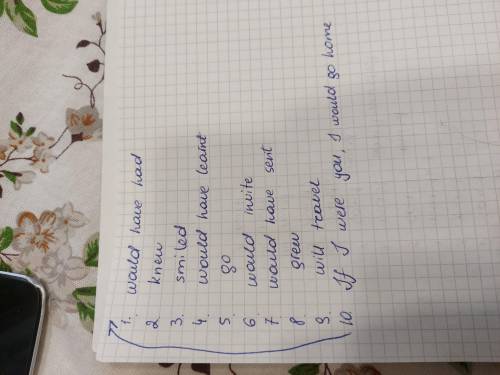 1. would have had
2. knew
3. smiled
4. would have learnt
5. go
6. would invite
7. would have sent
8. grew
9. will travel
10. If I were you, I would go home